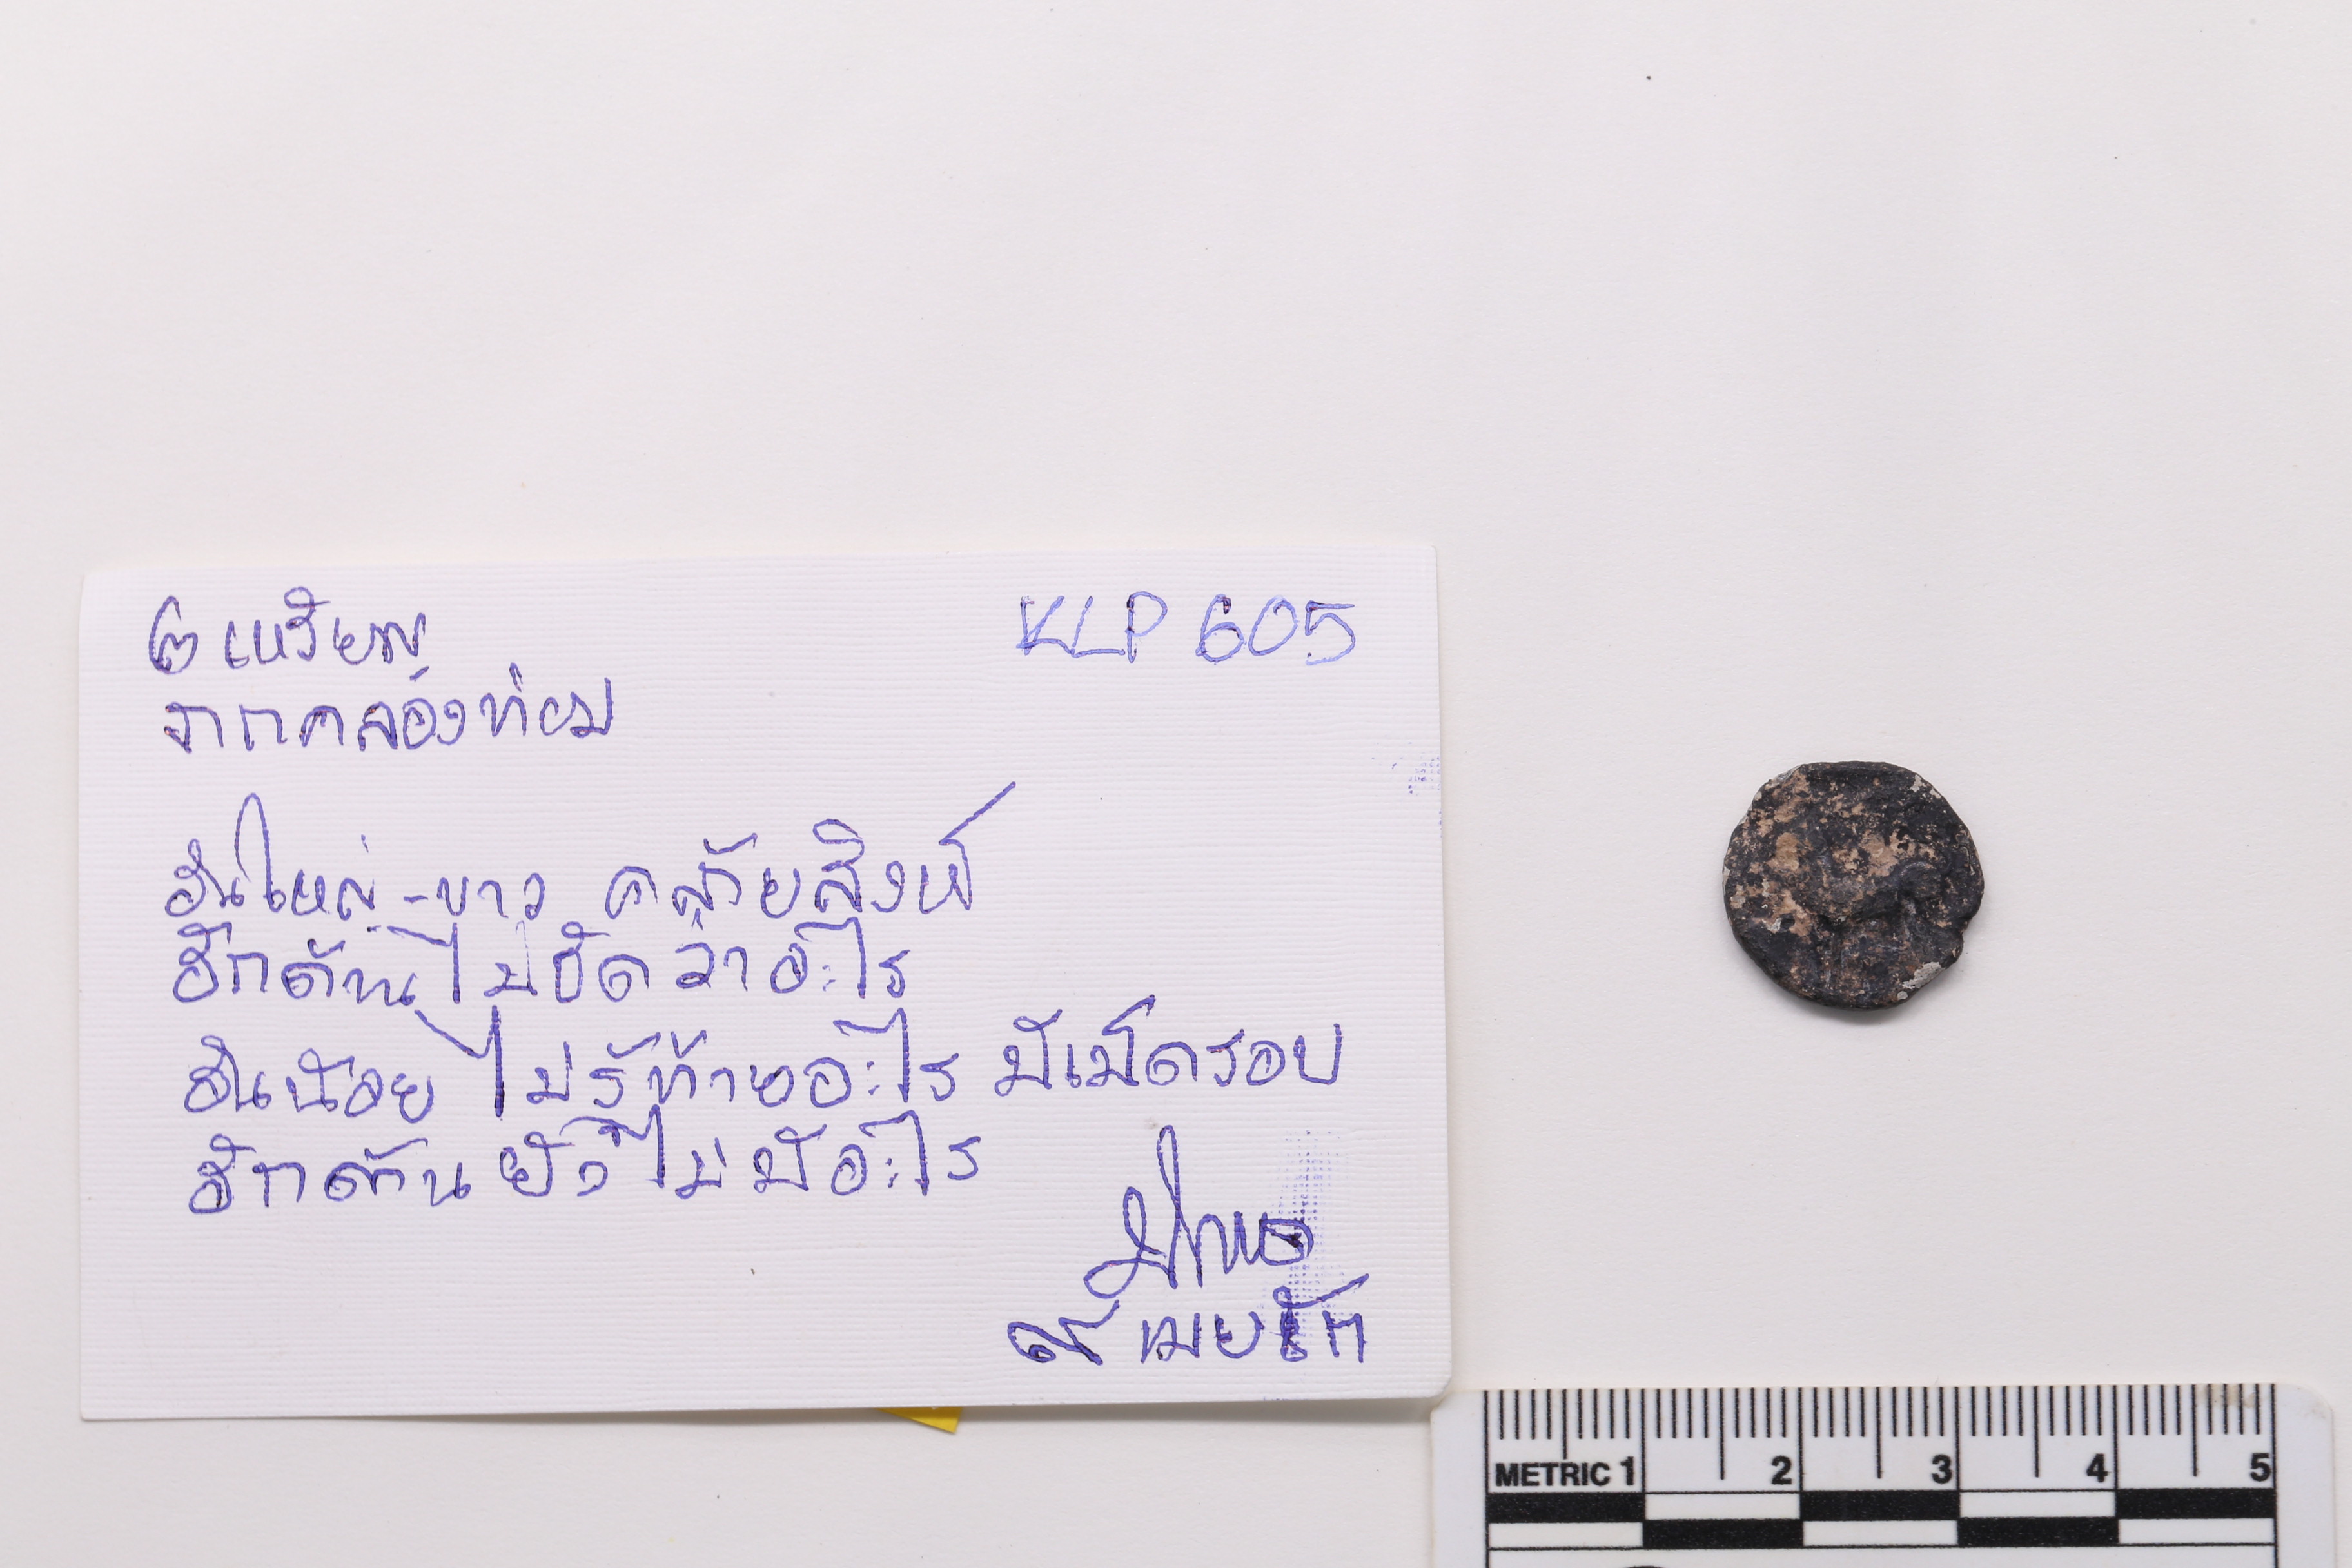 ๒ เหรียญ
KLP 605
จากคลองท่อม
อันใหญ่ - ขาว คล้ายสิงห์
อีกด้านไม่ชัดว่าอะไร
อันน้อย ไม่รู้ท้ายอะไร มีเม็ดรอบ
อีกด้านยังไม่มีอะไร
๙ เมย
METRIC 1 2 3 4 5